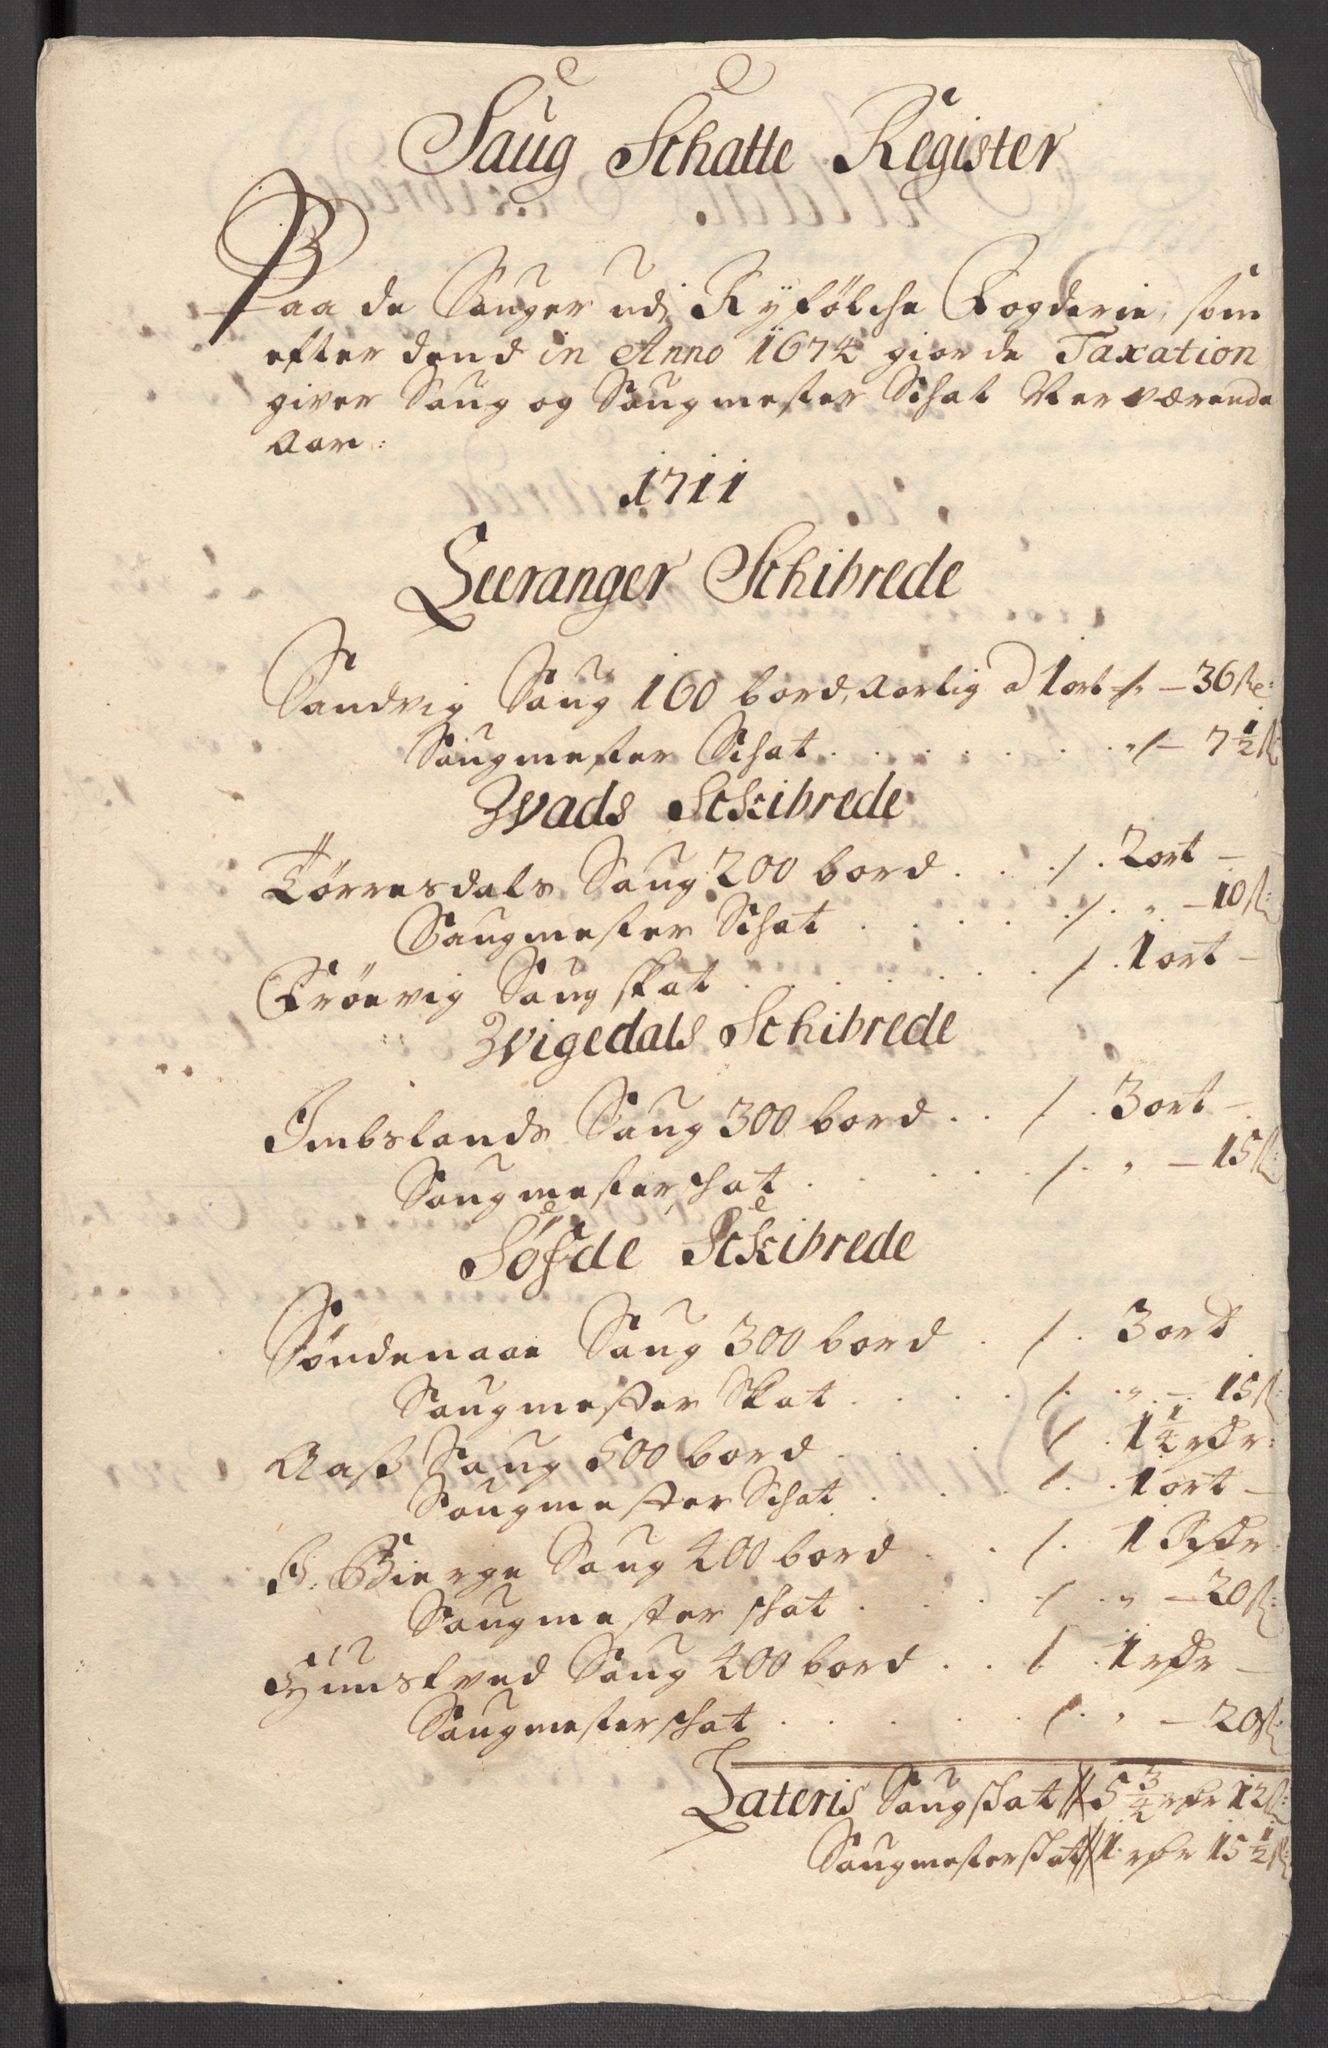 Saug Schatte Register
Paa de Sauger udj Ryfölche Fogderie, som
efter dend in Anno 1674 giorde Taxation
giver Saug og Saugmester Schat Nerværende
Aar:
1711
Leeranger Schibrede
Sandvig Saug 160 bord, Aarlig a 1 ort /. — 36 s:
Saugmester Schat . . . . . . . „ /— 7 1/2 s:
Hvads Schibrede
Törresdals Saug 200 bord . . . /. 2 ort —
Saugmester Schat . . . . . /. „ — 10 s:
Fröevig Saug skat . . . . . . /. 1 ort —
Hvigedals Schibrede
Imbslands Saug 300 bord . . /. 3 ort —
Saugmester schat . . . . . /. „ — 15 s:
Söfde Schibrede
Söndenaae Saug 300 bord . /. 3 ort
Saugmester Skat . . . . /. „ — 15 s:
Aass Saug 500 bord . . . . /. 1 1/4 rdr:
Saugmester Schat . . . . /. 1 ort —
Ö: Bierge Saug 400 bord . . /. 1 Rdr
Saugmester schat . . . . /. „ — 20 s:
Saug 400 bord . . /. 1 rdr —
Saugmester schat . . . . . /. „ — 20 s:
Lateris Saugschat // 5 3/4 rdr 12 s:
Saugmester schat // 1 rdr 15 1/2 s: